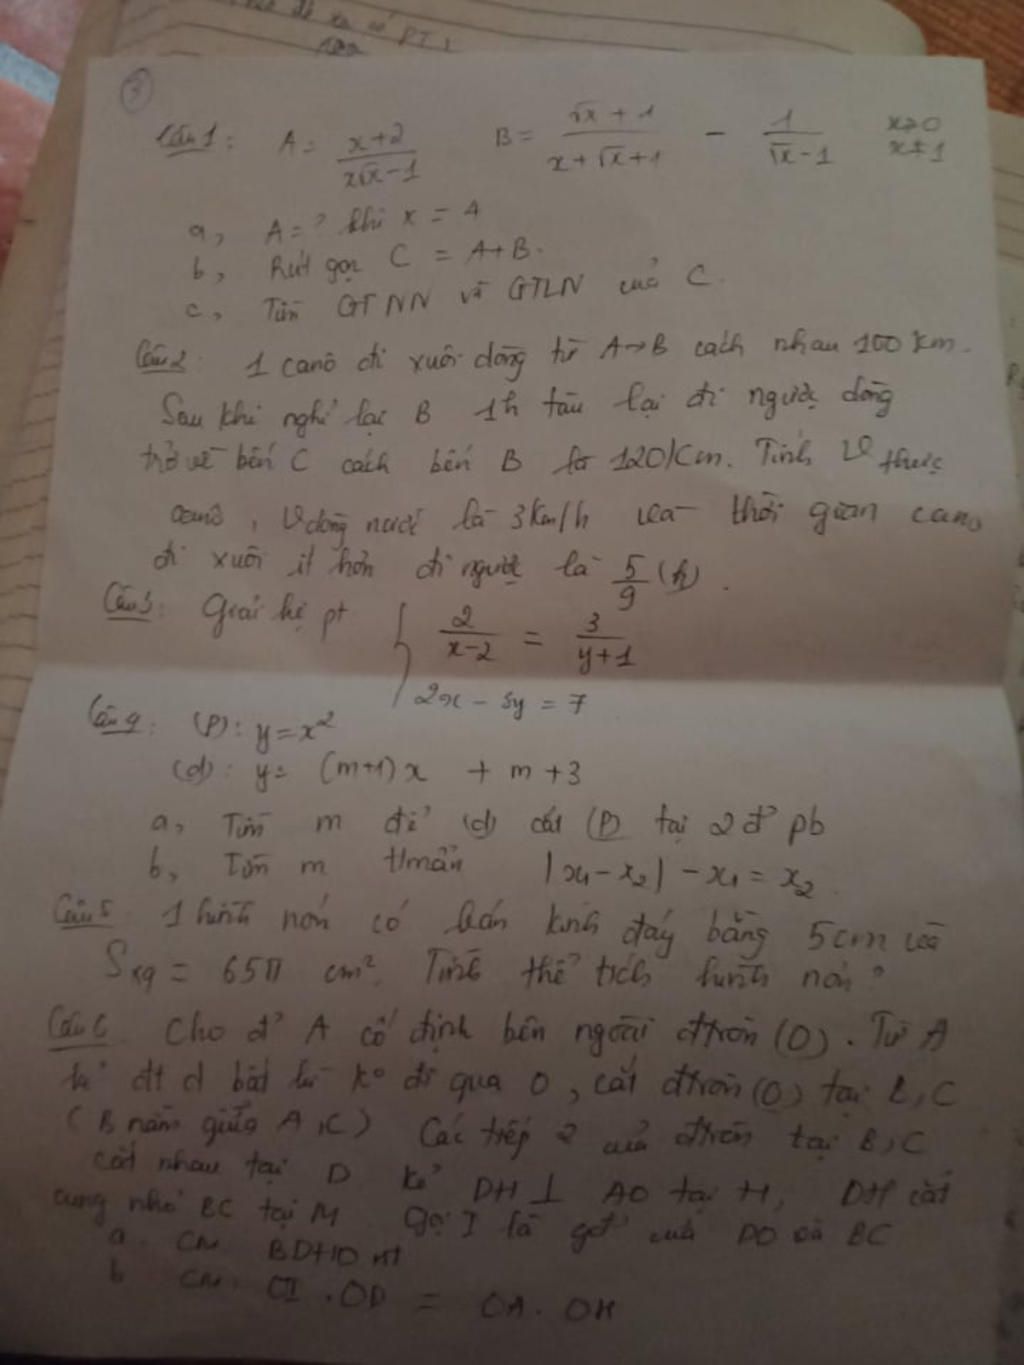 PT 1
3
Câu 1: A = \frac{x+2}{x\sqrt{x}-1} B = \frac{\sqrt{x}+1}{x+\sqrt{x}+1} - \frac{1}{\sqrt{x}-1} x≥0 x≠1
a, A = ? khi x = 4
b, Rút gọn C = A+B.
c, Tìm GTNN và GTLN của C.
Câu 2: 1 canô đi xuôi dòng từ A→B cách nhau 100 km.
Sau khi nghỉ lại B 1h tàu lại đi ngược dòng
trở về bến C cách bến B là 120 km. Tính V thực
canô, V dòng nước là 3km/h và thời gian canô
đi xuôi ít hơn đi ngược là \frac{5}{9} (h).
Câu 3: Giải hệ pt { \frac{2}{x-2} = \frac{3}{y+1}
2x - 5y = 7
Câu 4: (P): y = x²
(d): y = (m+1)x + m+3
a, Tìm m để (d) cắt (P) tại 2 đ' pb
b, Tìm m t/mãn |x₁ - x₂| - x₁ = x₂.
Câu 5 1 hình nón có bán kính đáy bằng 5cm và
Sxq = 65π cm². Tính thể tích hình nón?
Câu 6 Cho đ' A cố định bên ngoài đtròn (O). Từ A
kẻ đt d bất kì kº đi qua O, cắt đtròn (O) tại B, C
(B nằm giữa A, C) Các tiếp 2 của đtròn tại B, C
cắt nhau tại D kẻ DH ⊥ AO tại H, DH cắt
cung nhỏ BC tại M Gọi I là gđ' của DO và BC
a CM BDHO nt
b CM. OI . OD = OA . OH